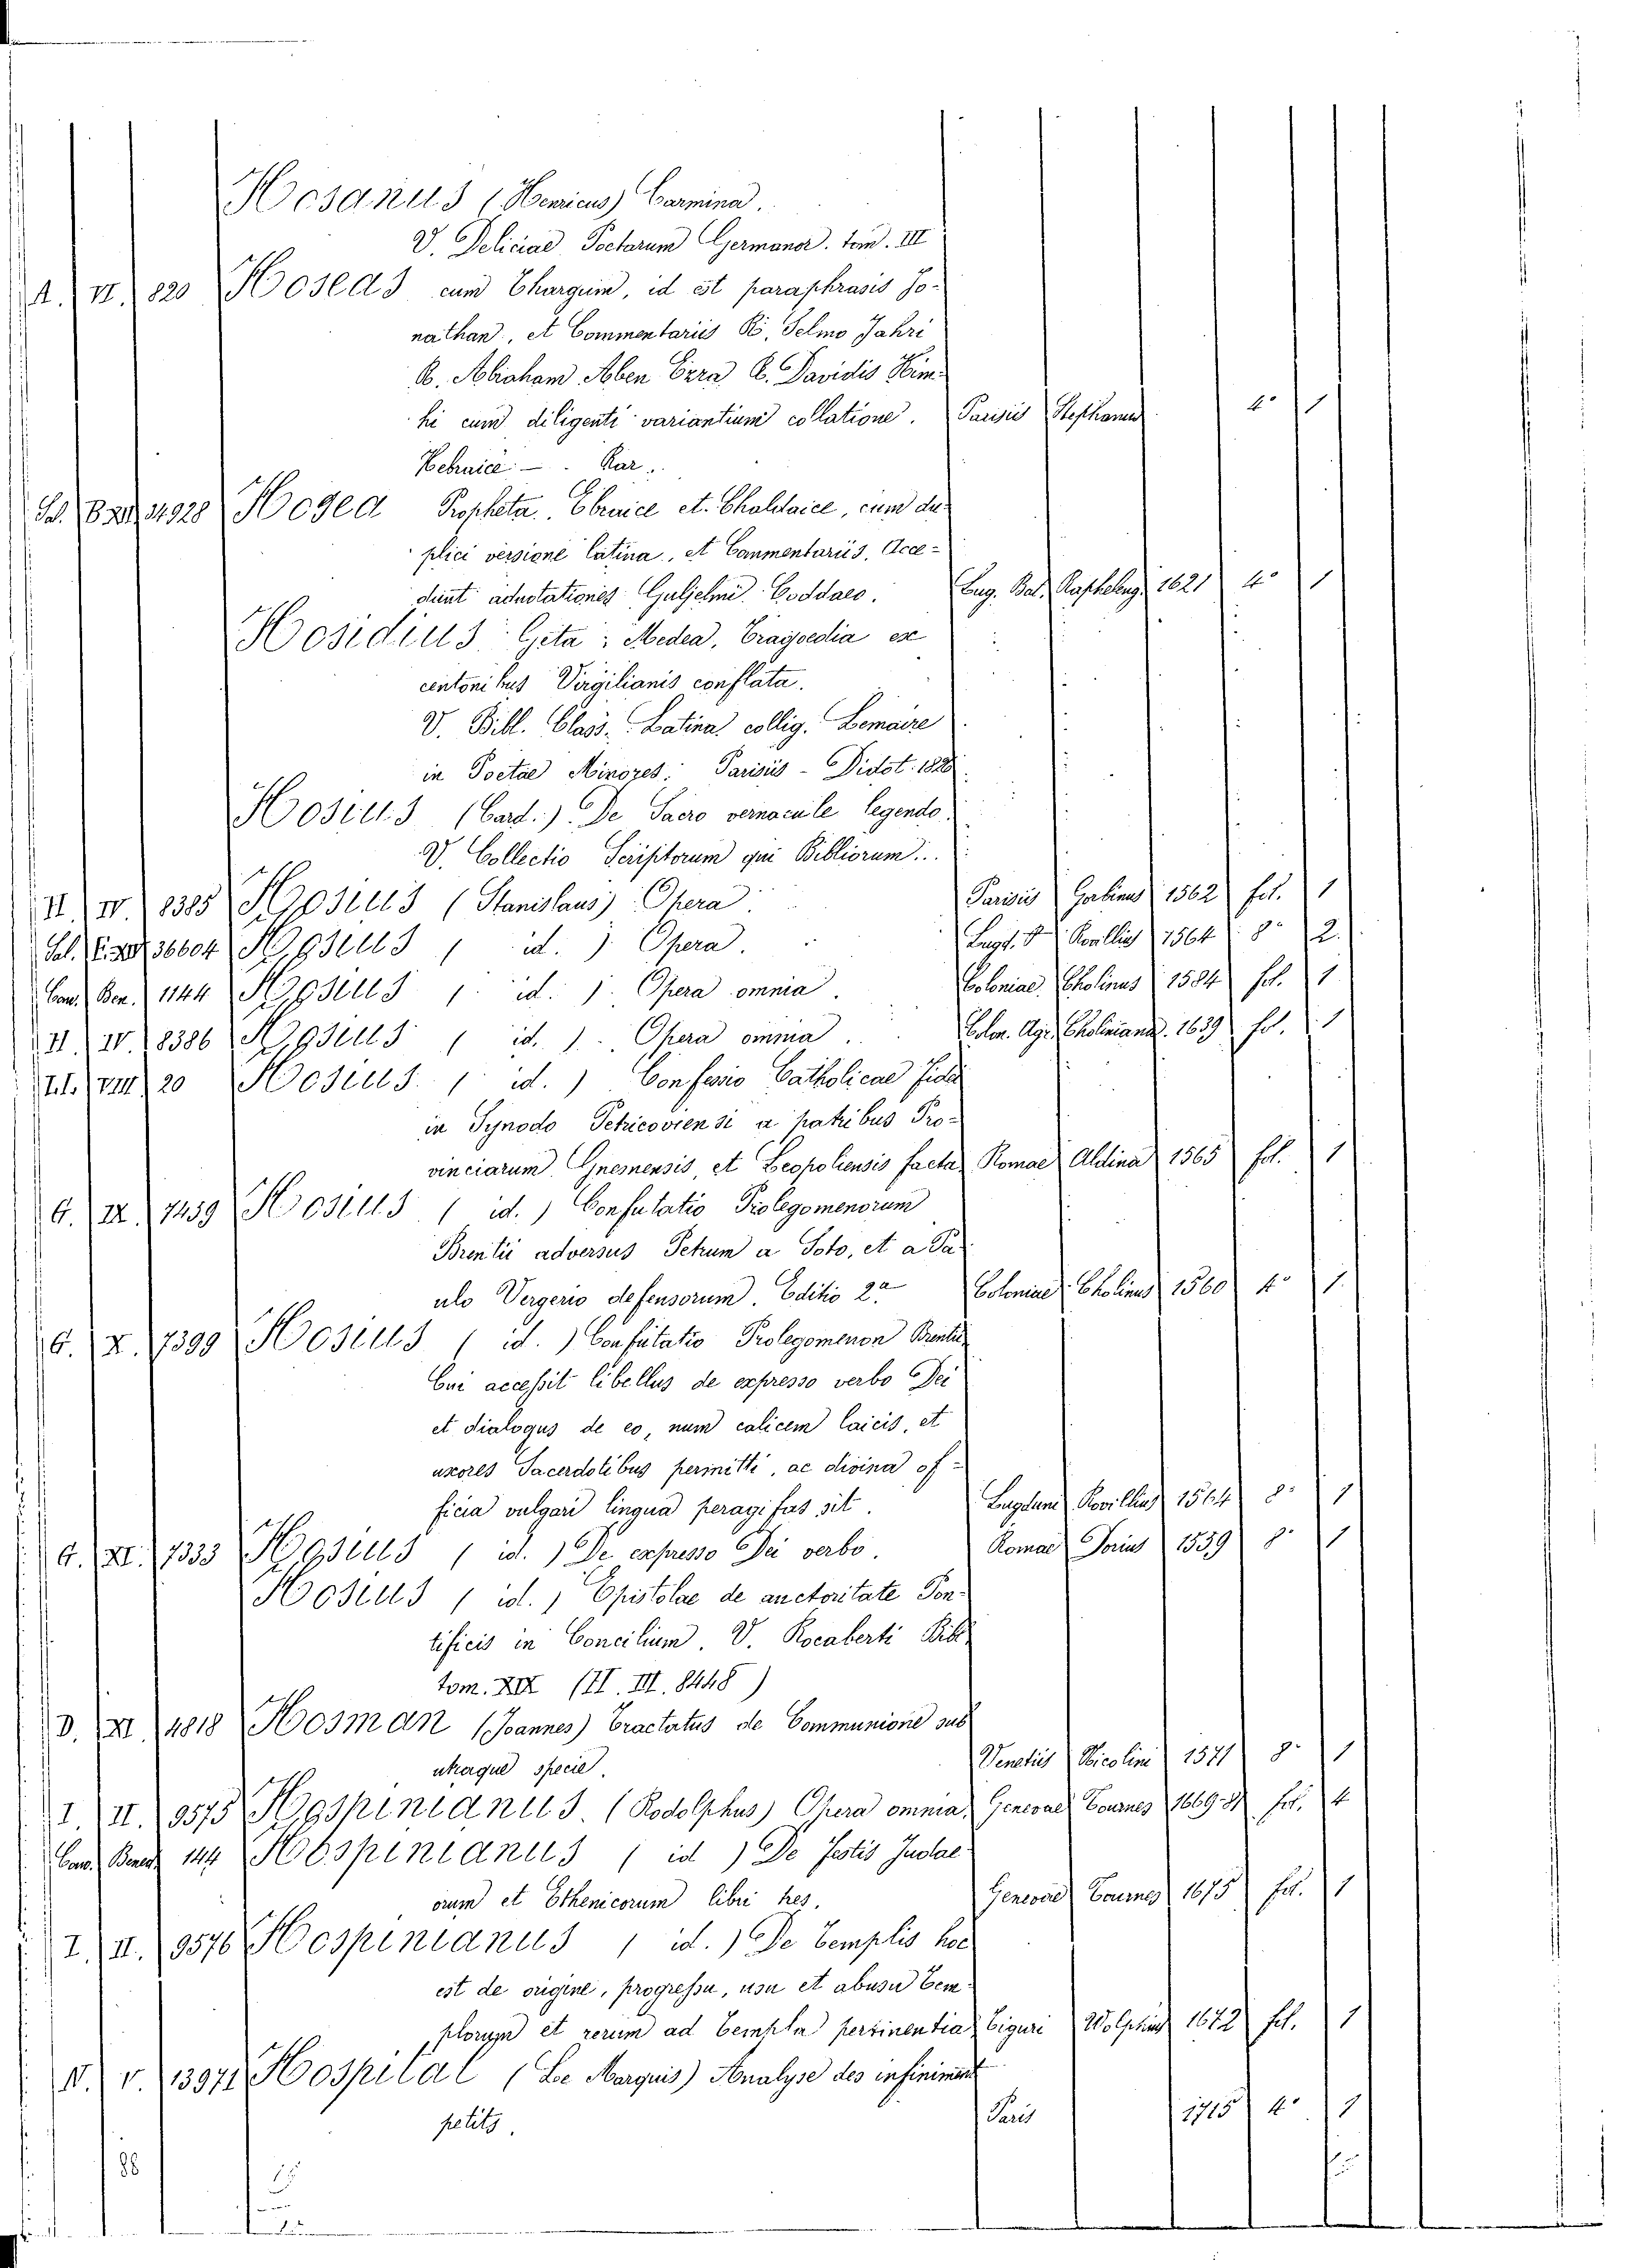 Hosanus (Henricus) Carmina.
V. Deliciae Poetarum Germanor. tom. III
A. VI. 820 Hoseas cum Thargum, id est paraphrasis Jo-
nathan, et Commentariis R. Selmo Jahri
R. Abraham Aben Ezra R. Davidis Kim-
hi cum diligenti variantium collatione. Parisiis Stephanus 4° 1
Hebraice — Rar.
Sd. B XII 31928 Hosea Propheta. Ebraice et Chaldaice, cum du-
plici versione latina, et Commentariis. Acce-
dunt adnotationes Guljelmi Coddaeo. Lug. Bat. Rapheleng. 1621 4° 1
Hosidius Geta: Medea, Tragoedia ex
centonibus Virgilianis conflata.
V. Bibl. Class. Latina collig. Lemaire
in Poetae Minores. Parisiis - Didot. 1826
Hosius (Card.) De Sacro vernacule legendo.
V. Collectio Scriptorum qui Bibliorum...
II IV 8385 Hosius (Stanislaus) Opera. Parisiis Gabinus 1562 fol. 1
Sal. E. XV 36604 Hosius ( id. ) Opera. Lugd. Rovillius 1564 8° 2.
Can. Ben. 1144 Hosius ( id. ) Opera omnia. Coloniae Cholinus 1584 fol. 1
II. IV. 8386 Hosius ( id. ) Opera omnia. Colon. Agr. Choliniana. 1639 fol. 1
VIII 20 Hosius ( id. ) Confessio Catholicae fidei
in Synodo Petricoviensi a patribus Pro-
vinciarum Gnesnensis, et Leopoliensis facta Romae Aldina 1565 fol. 1
G. IX. 7459 Hosius ( id. ) Confutatio Prolegomenorum
Brentii adversus Petrum a Soto, et a Pa-
ulo Vergerio defensorum. Editio 2a Coloniae Cholinus 1560 4° 1.
G. X. 7399 Hosius ( id. ) Confutatio Prolegomenon Brentii
Cui accessit libellus de expresso verbo Dei
et dialogus de eo, num calicem laicis, et
uxores Sacerdotibus permitti, ac divina of-
ficia vulgari lingua peragi fas sit. Lugduni Rovillius 1564 8° 1
G. XI. 7333 Hosius ( id. ) De expresso Dei verbo. Romae Dorius 1559 8° 1
Hosius ( id. ) Epistolae de auctoritate Pon-
tificis in Concilium. V. Rocaberti Bibl.
tom. XIX (II. III. 8448)
D. XI. 4818 Hosman (Joannes) Tractatus de Communione sub
utraque specie. Venetiis Nicolini 1571 8° 1
I. II. 9575 Hospinianus (Rodolphus) Opera omnia. Genevae Tournes 1669-81 fol. 4
Can. Bened. 144 Hospinianus ( id ) De festis Judae-
orum et Ethenicorum libri tres. Genevae Tournes 1675 fol. 1
I. II. 9576 Hospinianus ( id. ) De Templis hoc
est de origine, progressu, usu et abusu Tem-
plorum et rerum ad Templa pertinentia Tiguri Wolphius 1672 fol. 1
N. V. 13971 Hospital (Le Marquis) Analyse des infiniment
petits. Paris 1715 4° 1
88